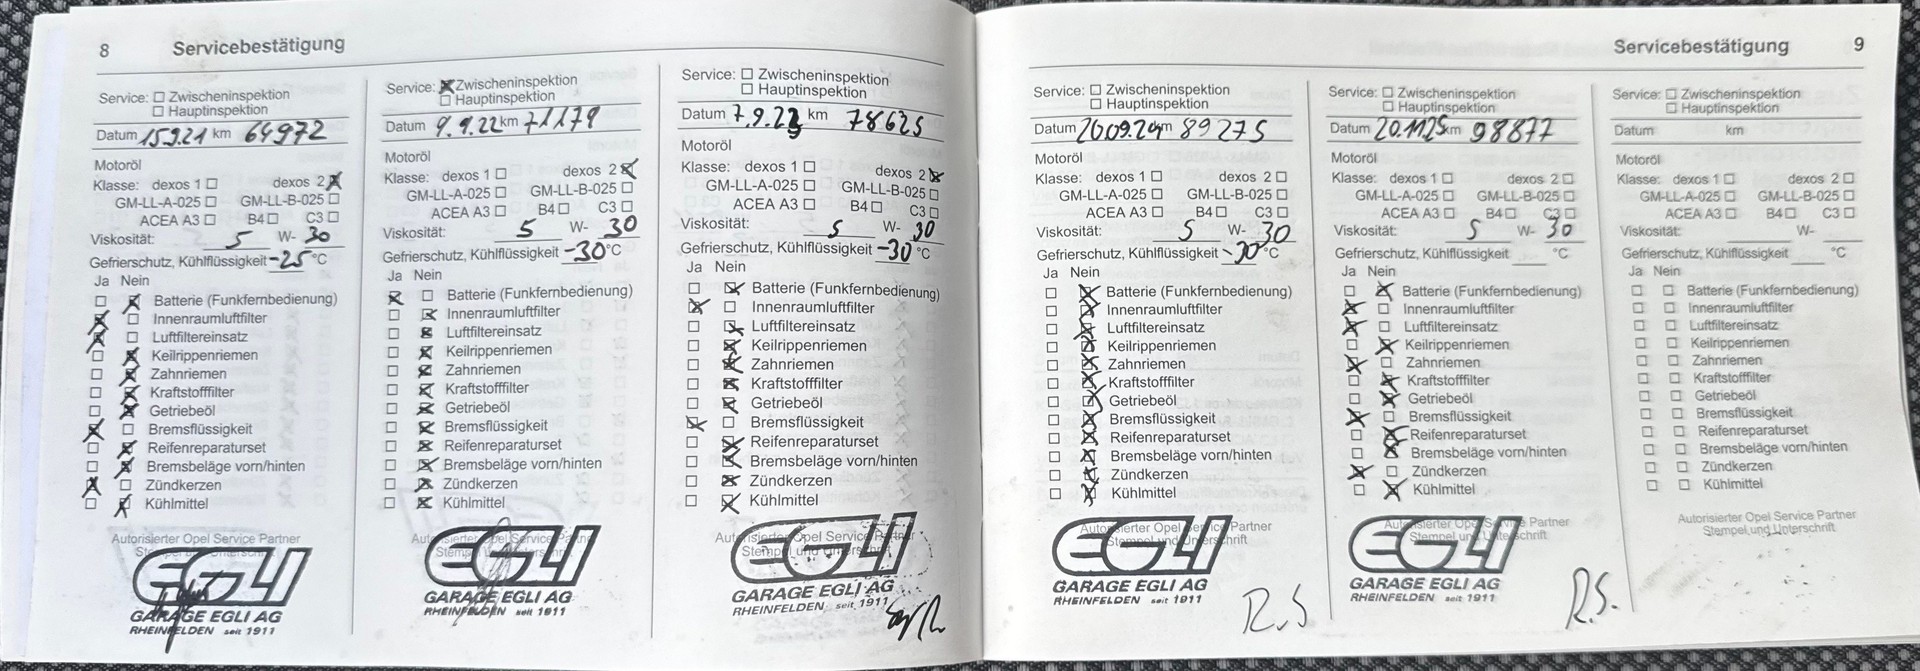 8 Servicebestätigung
Service: ☐ Zwischeninspektion
☐ Hauptinspektion
Datum 15.9.21 km 64972
Motoröl
Klasse: dexos 1 ☐ dexos 2 ☒
GM-LL-A-025 ☐ GM-LL-B-025 ☐
ACEA A3 ☐ B4 ☐ C3 ☐
Viskosität: 5 W- 30
Gefrierschutz, Kühlflüssigkeit -25 °C
Ja Nein
☐ ☒ Batterie (Funkfernbedienung)
☒ ☐ Innenraumluftfilter
☒ ☐ Luftfiltereinsatz
☐ ☒ Keilrippenriemen
☐ ☒ Zahnriemen
☐ ☒ Kraftstofffilter
☐ ☒ Getriebeöl
☒ ☐ Bremsflüssigkeit
☐ ☒ Reifenreparaturset
☐ ☒ Bremsbeläge vorn/hinten
☒ ☐ Zündkerzen
☐ ☒ Kühlmittel
Autorisierter Opel Service Partner
EGLI
GARAGE EGLI AG
RHEINFELDEN seit 1911
Service: ☒ Zwischeninspektion
☐ Hauptinspektion
Datum 9.9.22 km 71179
Motoröl
Klasse: dexos 1 ☐ dexos 2 ☒
GM-LL-A-025 ☐ GM-LL-B-025 ☐
ACEA A3 ☐ B4 ☐ C3 ☐
Viskosität: 5 W- 30
Gefrierschutz, Kühlflüssigkeit -30 °C
Ja Nein
☒ ☐ Batterie (Funkfernbedienung)
☐ ☒ Innenraumluftfilter
☐ ☒ Luftfiltereinsatz
☐ ☒ Keilrippenriemen
☐ ☒ Zahnriemen
☐ ☒ Kraftstofffilter
☐ ☒ Getriebeöl
☐ ☒ Bremsflüssigkeit
☐ ☒ Reifenreparaturset
☐ ☒ Bremsbeläge vorn/hinten
☐ ☒ Zündkerzen
☐ ☒ Kühlmittel
Autorisierter Opel Service Partner
Stempel und Unterschrift
EGLI
GARAGE EGLI AG
RHEINFELDEN seit 1911
Service: ☐ Zwischeninspektion
☐ Hauptinspektion
Datum 7.9.23 km 78625
Motoröl
Klasse: dexos 1 ☐ dexos 2 ☒
GM-LL-A-025 ☐ GM-LL-B-025 ☐
ACEA A3 ☐ B4 ☐ C3 ☐
Viskosität: 5 W- 30
Gefrierschutz, Kühlflüssigkeit -30 °C
Ja Nein
☐ ☒ Batterie (Funkfernbedienung)
☒ ☐ Innenraumluftfilter
☐ ☒ Luftfiltereinsatz
☐ ☒ Keilrippenriemen
☐ ☒ Zahnriemen
☐ ☒ Kraftstofffilter
☐ ☒ Getriebeöl
☒ ☐ Bremsflüssigkeit
☐ ☒ Reifenreparaturset
☐ ☒ Bremsbeläge vorn/hinten
☐ ☒ Zündkerzen
☐ ☒ Kühlmittel
Autorisierter Opel Service Partner
Stempel und Unterschrift
EGLI
GARAGE EGLI AG
RHEINFELDEN seit 1911
Servicebestätigung 9
Service: ☐ Zwischeninspektion
☐ Hauptinspektion
Datum 20.09.24 km 89275
Motoröl
Klasse: dexos 1 ☐ dexos 2 ☐
GM-LL-A-025 ☐ GM-LL-B-025 ☐
ACEA A3 ☐ B4 ☐ C3 ☐
Viskosität: 5 W- 30
Gefrierschutz, Kühlflüssigkeit -30 °C
Ja Nein
☐ ☒ Batterie (Funkfernbedienung)
☐ ☒ Innenraumluftfilter
☐ ☒ Luftfiltereinsatz
☐ ☒ Keilrippenriemen
☐ ☒ Zahnriemen
☐ ☒ Kraftstofffilter
☐ ☒ Getriebeöl
☐ ☒ Bremsflüssigkeit
☐ ☒ Reifenreparaturset
☐ ☒ Bremsbeläge vorn/hinten
☐ ☒ Zündkerzen
☐ ☒ Kühlmittel
Autorisierter Opel Service Partner
Stempel und Unterschrift
EGLI
GARAGE EGLI AG
RHEINFELDEN seit 1911
R.S
Service: ☐ Zwischeninspektion
☐ Hauptinspektion
Datum 20.11.25 km 98877
Motoröl
Klasse: dexos 1 ☐ dexos 2 ☐
GM-LL-A-025 ☐ GM-LL-B-025 ☐
ACEA A3 ☐ B4 ☐ C3 ☐
Viskosität: 5 W- 30
Gefrierschutz, Kühlflüssigkeit °C
Ja Nein
☐ ☒ Batterie (Funkfernbedienung)
☒ ☐ Innenraumluftfilter
☒ ☐ Luftfiltereinsatz
☐ ☒ Keilrippenriemen
☒ ☐ Zahnriemen
☐ ☒ Kraftstofffilter
☐ ☒ Getriebeöl
☒ ☐ Bremsflüssigkeit
☐ ☒ Reifenreparaturset
☐ ☒ Bremsbeläge vorn/hinten
☒ ☐ Zündkerzen
☐ ☒ Kühlmittel
Autorisierter Opel Service Partner
Stempel und Unterschrift
EGLI
GARAGE EGLI AG
RHEINFELDEN seit 1911
R.S.
Service: ☐ Zwischeninspektion
☐ Hauptinspektion
Datum km
Motoröl
Klasse: dexos 1 ☐ dexos 2 ☐
GM-LL-A-025 ☐ GM-LL-B-025 ☐
ACEA A3 ☐ B4 ☐ C3 ☐
Viskosität: W-
Gefrierschutz, Kühlflüssigkeit °C
Ja Nein
☐ ☐ Batterie (Funkfernbedienung)
☐ ☐ Innenraumluftfilter
☐ ☐ Luftfiltereinsatz
☐ ☐ Keilrippenriemen
☐ ☐ Zahnriemen
☐ ☐ Kraftstofffilter
☐ ☐ Getriebeöl
☐ ☐ Bremsflüssigkeit
☐ ☐ Reifenreparaturset
☐ ☐ Bremsbeläge vorn/hinten
☐ ☐ Zündkerzen
☐ ☐ Kühlmittel
Autorisierter Opel Service Partner
Stempel und Unterschrift